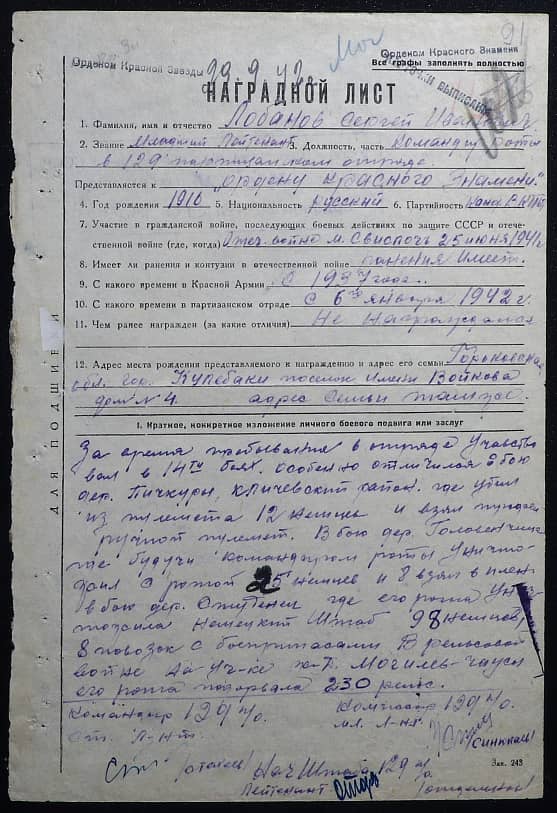 Орденом Красной Звезды
Орденом Красного Знамени
Все графы заполнять полностью
НАГРАДНОЙ ЛИСТ
1. Фамилия, имя и отчество Лобанов Сергей
2. Звание Младший Лейтенант 3. Должность, часть Командир роты
в 129 партизанском отряде
Представляется к "ордену Красного Знамени"
4. Год рождения 1916 5. Национальность русский 6. Партийность
7. Участие в гражданской войне, последующих боевых действиях по защите СССР и отече-
ственной войне (где, когда) м. Свислочь 25 июня 1941 г
8. Имеет ли ранения и контузии в отечественной войне ранения имеет.
9. С какого времени в Красной Армии С 1937 года.
10. С какого времени в партизанском отряде С 6го января 1942 г.
11. Чем ранее награжден (за какие отличия) Не награждался
12. Адрес места рождения представляемого к награждению и адрес его семьи Горьковская
обл. гор. Кулебаки поселок имени Войкова
дом № 4. адрес семьи
ДЛЯ ПОДШИВКИ
I. Краткое, конкретное изложение личного боевого подвига или заслуг
За время пребывания в отряде участво
вал в 14ти боях. особенно отличился в бою
дер. Пичкуры, Кличевский где убил
из пулемета 12 немцев и взял
ручной пулемет. В бою дер.
будучи командиром роты уничто
жил с ротой 25 немцев и 8 взял в плен
в бою дер. где его рота уни
тожила немецкий Штаб 98 немцев,
8 повозок с боеприпасами. В рельсовой
войне на уч-ке ж.д. Могилев-Чаусы
его рота подорвала 230 рельс.
Командир 129 п/о. Комиссар 129 п/о.
Ст. Л-нт. мл. Л-нт
Нач Штаба 129 п/о
Лейтенант
Зак. 243